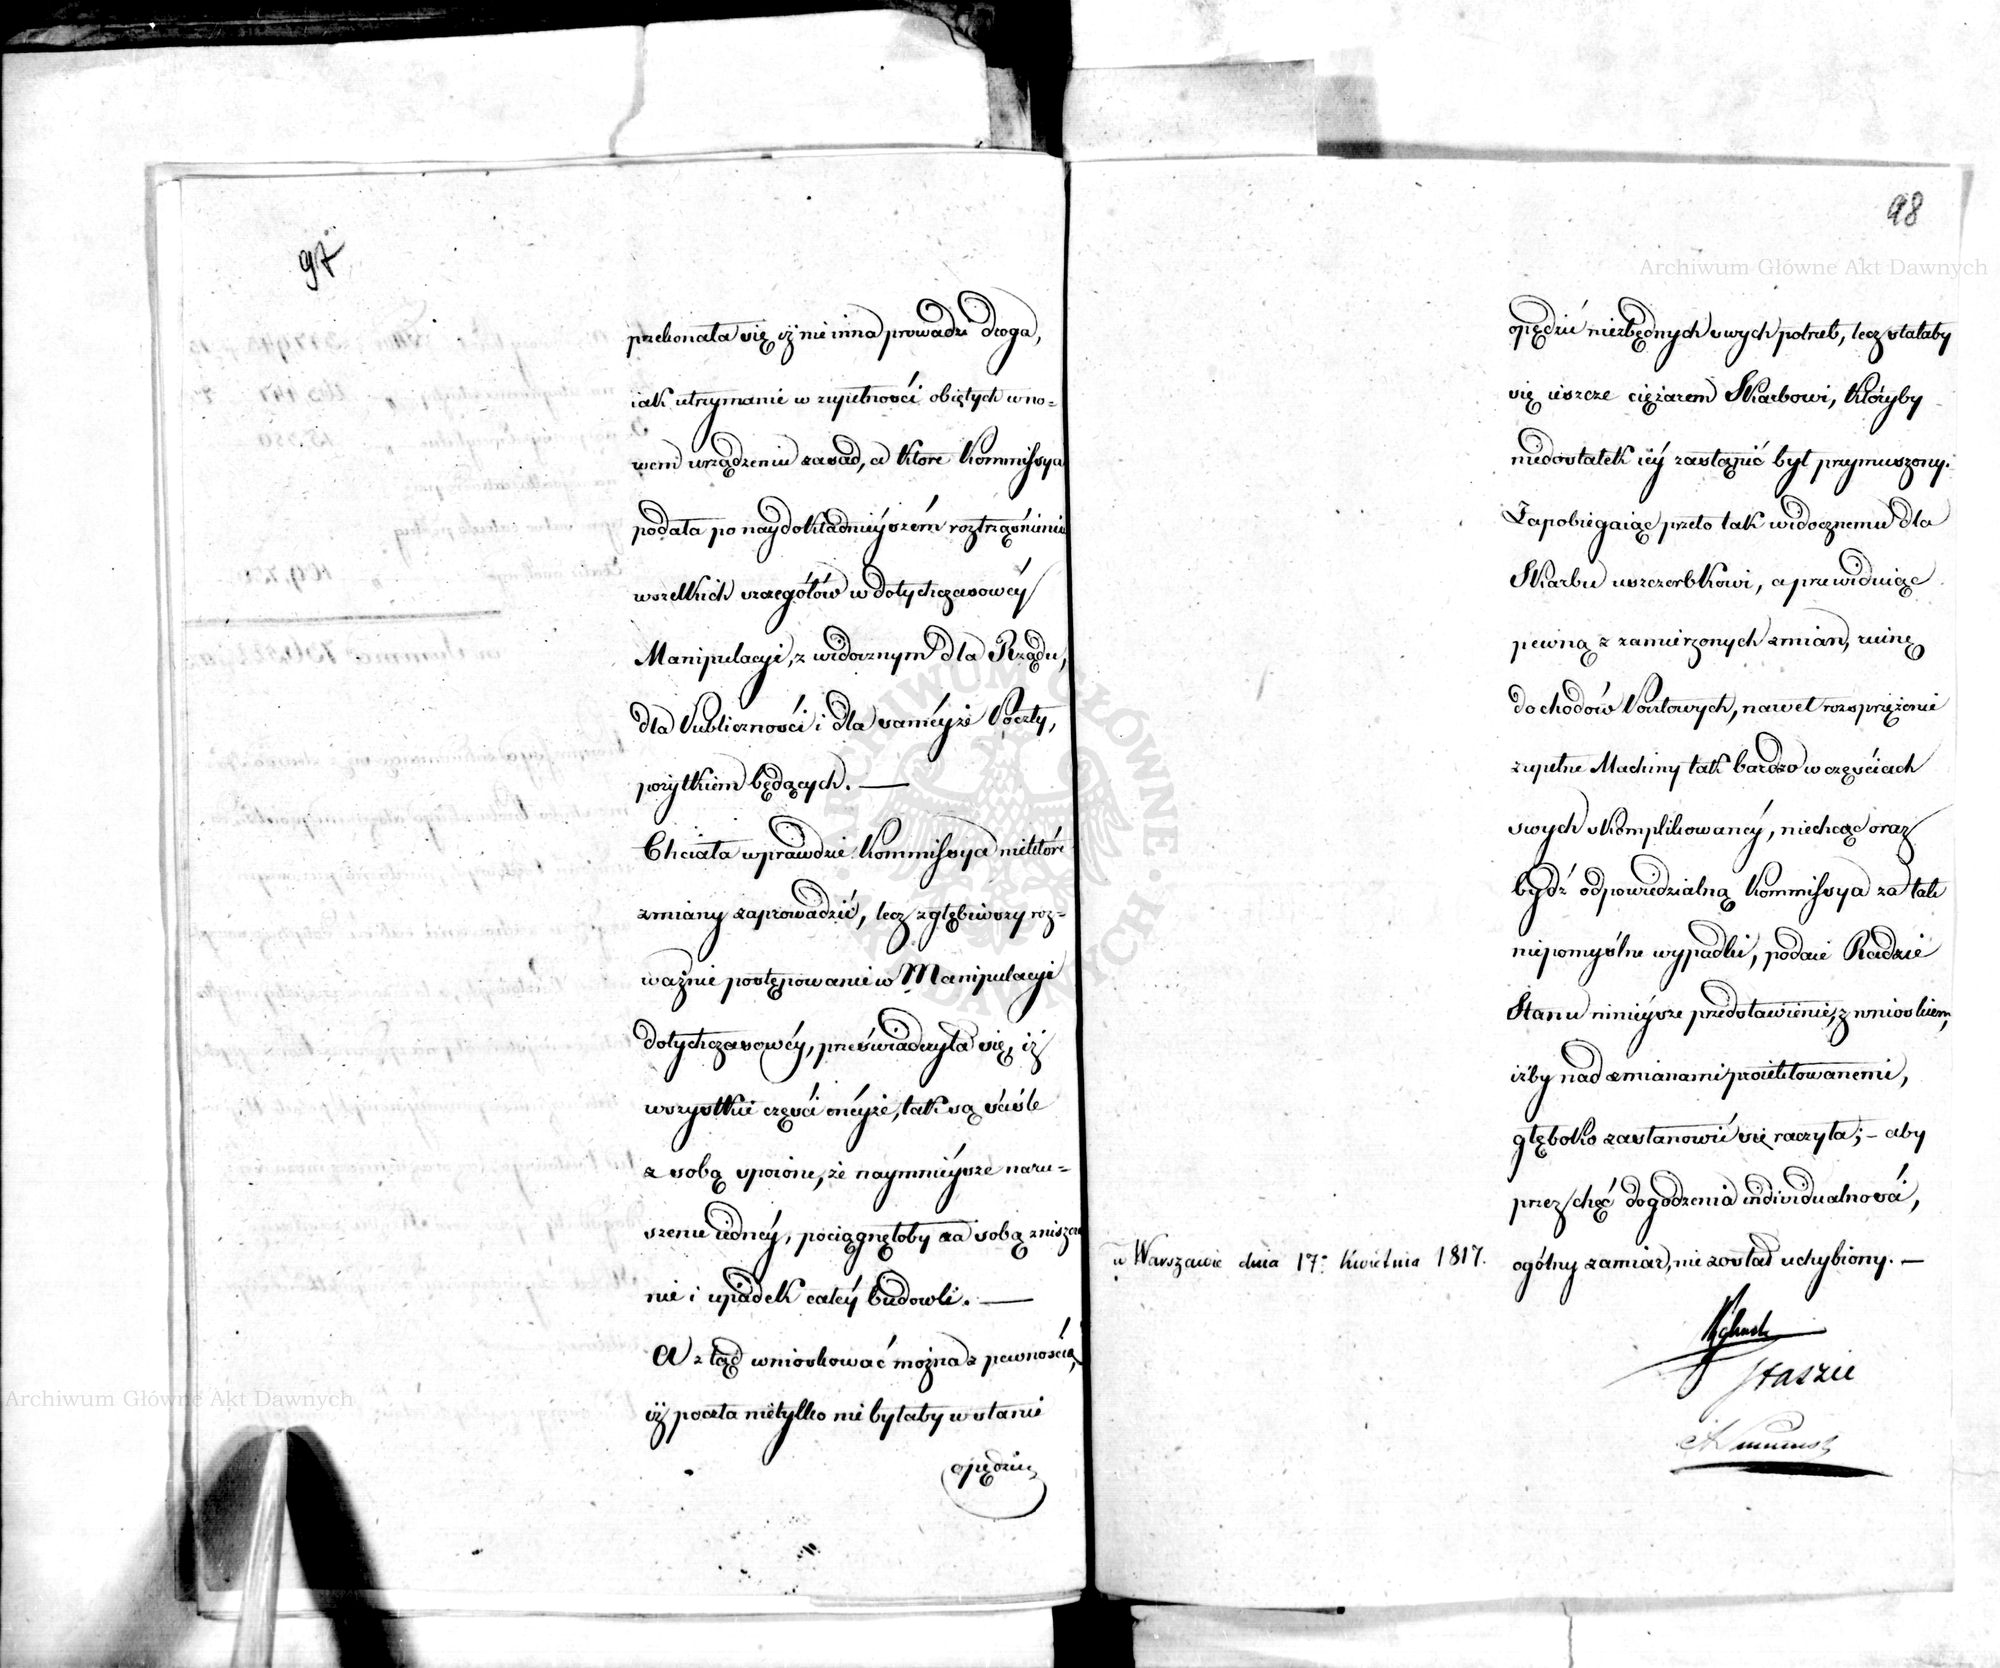 97
przekonała się iż nie inna prowadzi droga,
iak utrzymanie w zupełności obiętych w no=
wem urządzeniu zasad, a które Kommissya
podała po naydokładnieyszém roztrząśnieniu
wszelkich szczegółów w dotychczasowéy
Manipulacyi, z widocznym dla Rządu,
dla Publiczności i dla saméyże Poczty,
pożytkiem będących. —
Chciała wprawdzie Kommissya niektóre
zmiany zaprowadzić, lecz zgłębiwszy roz=
ważnie postępowanie w Manipulacyi
dotychczasowéy, przeświadczyła się, iż
wszystkie części onéyże, tak są ściśle
z sobą spoione, że naymnieysze naru=
szenie iednéy, pociągnęłoby za sobą zniszcze
nie i upadek całéy budowli. —
A z tąd wnioskować można z pewnością,
iż poczta nietylko nie byłaby w stanie
opędzić
98
opędzić niezbędnych swych potrzeb, lecz stałaby
się ieszcze ciężarem Skarbowi, któryby
niedostatek iéy zastąpić był przymuszony.
Zapobiegaiąc przeto tak widocznemu dla
Skarbu uszczerbkowi, a przewiduiąc
pewną z zamierzonych zmian, ruinę
dochodów Pocztowych, nawet rozsprzężenie
zupełne Machiny tak bardzo w częściach
swych skomplikowanéy, niechcąc oraz
bydź odpowiedzialną Kommissya za tak
niepomyślne wypadki, podaie Radzie
Stanu ninieysze przedstawienie, z wnioskiem,
iżby nad zmianami proiektowanemi,
głęboko zastanowić się raczyła; – aby
przez chęć dogodzenia indiwidualności,
ogólny zamiar, nie został uchybiony. —
w Warszawie dnia 17: Kwietnia 1817.
Staszic
Archiwum Główne Akt Dawnych
Archiwum Główne Akt Dawnych
ARCHIWUM GŁÓWNE AKT DAWNYCH